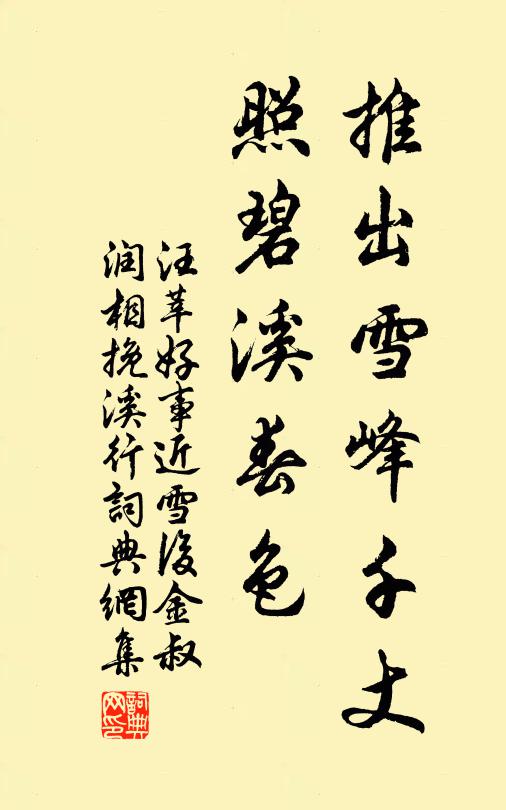 推出雪峰千丈
照碧溪春色
汪莘好事近雪後金叔
润相挽溪行詞典網集
詞典網印